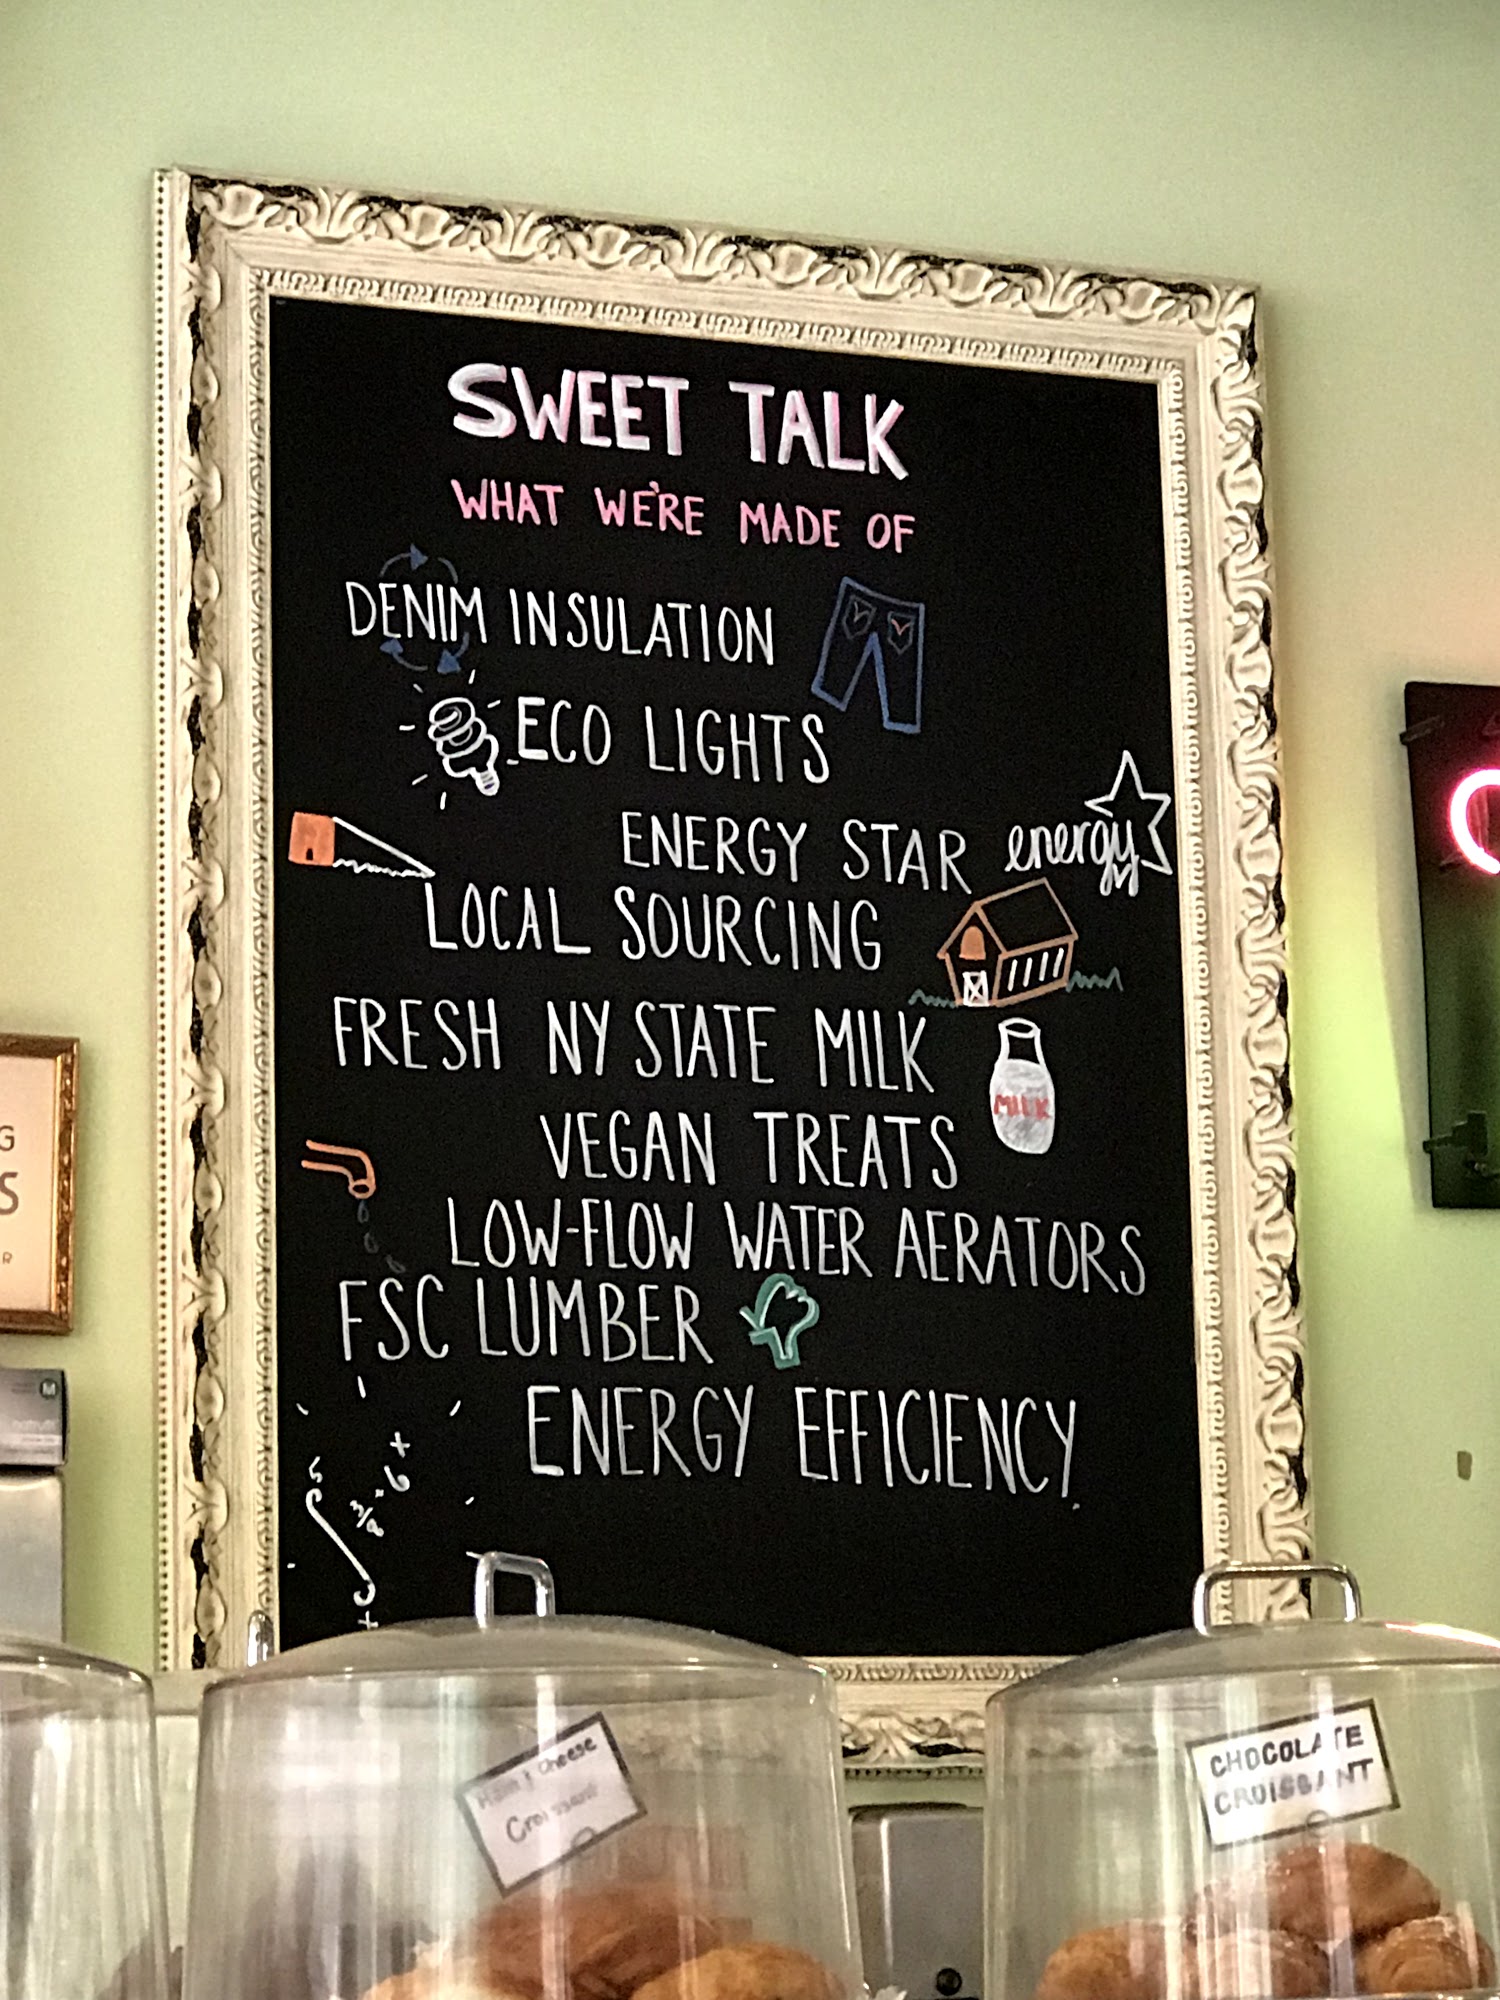 SWEET TALK
WHAT WE'RE MADE OF
DENIM INSULATION
ECO LIGHTS
ENERGY STAR energy
LOCAL SOURCING
FRESH NY STATE MILK
MILK
VEGAN TREATS
LOW-FLOW WATER AERATORS
FSC LUMBER
ENERGY EFFICIENCY
G
S
R
M
Ham & Cheese
Croissant
CHOCOLATE
CROISSANT